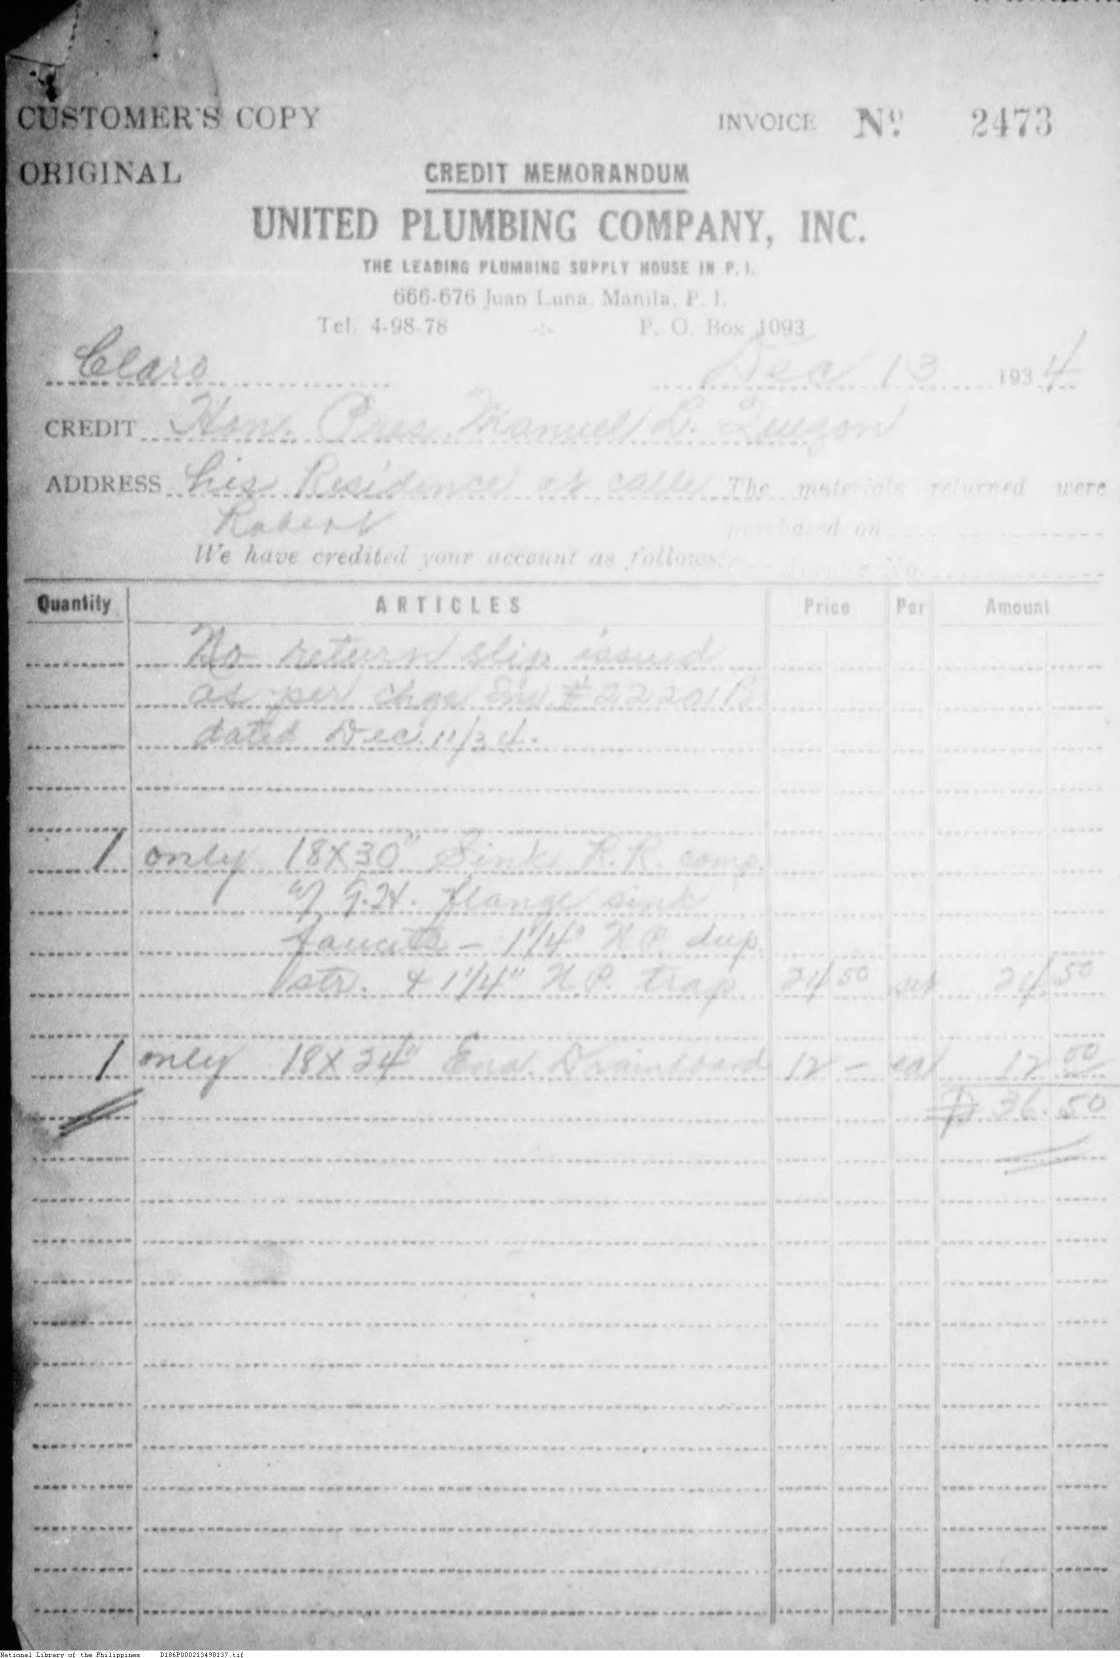 CUSTOMER'S COPY
INVOICE No. 2473
ORIGINAL
CREDIT MEMORANDUM
UNITED PLUMBING COMPANY, INC.
THE LEADING PLUMBING SUPPLY HOUSE IN P. I.
666-676 Juan Luna, Manila, P. I.
Tel. 4-98-78 -:- P. O. Box 1093
Claro Dec 13 1934
CREDIT Hon. Pres. Manuel L. Quezon
ADDRESS his Residence at calle The materials returned were
Robert purchased on
We have credited your account as follows:
No.
Quantity ARTICLES Price Per Amount
No return slip issued
as per chge Inv. # 22201B
dated Dec. 11/34.
1 only 18X30" Sink R.R. comp.
w/ flange sink
faucets – 1 1/4" N.P. dup.
str. & 1 1/4" N.P. trap 24 50 set 24 50
1 only 18X24" Ena. Drainboard 12 – ea 12 00
₱ 36.50
National Library of the Philippines D186P000213498137.tif